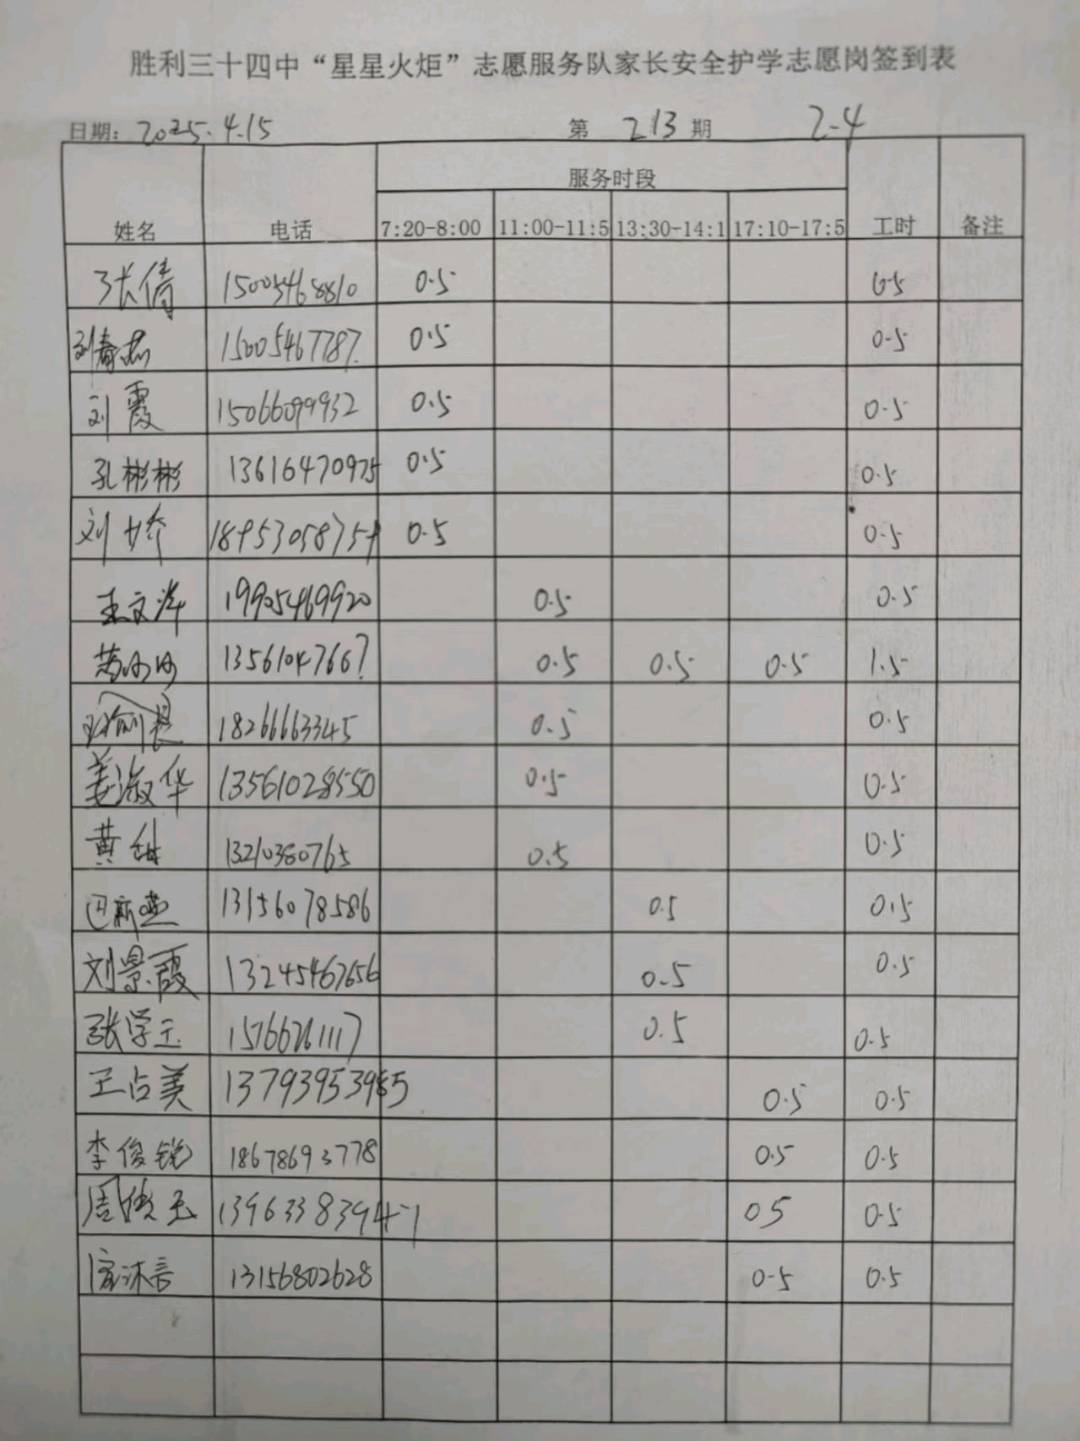 胜利三十四中“星星火炬”志愿服务队家长安全护学志愿岗签到表
日期: 2025.4.15 第 213 期 2-4
服务时段
姓名 电话 7:20-8:00 11:00-11:5 13:30-14:1 17:10-17:5 工时 备注
张倩 15005468810 0.5 0.5
刘春 15005467787 0.5 0.5
刘霞 15066099932 0.5 0.5
孔彬彬 13616470975 0.5 0.5
刘 0.5 0.5
王文 19905469920 0.5 0.5
13561047667 0.5 0.5 0.5 1.5
18266663345 0.5 0.5
姜淑华 13561028550 0.5 0.5
黄 13210380765 0.5 0.5
新燕 13156078586 0.5 0.5
刘景霞 13245467656 0.5 0.5
张学玉 0.5 0.5
王占美 13793953985 0.5 0.5
李俊锐 18678693778 0.5 0.5
周 玉 05 0.5
沐言 13156802628 0.5 0.5